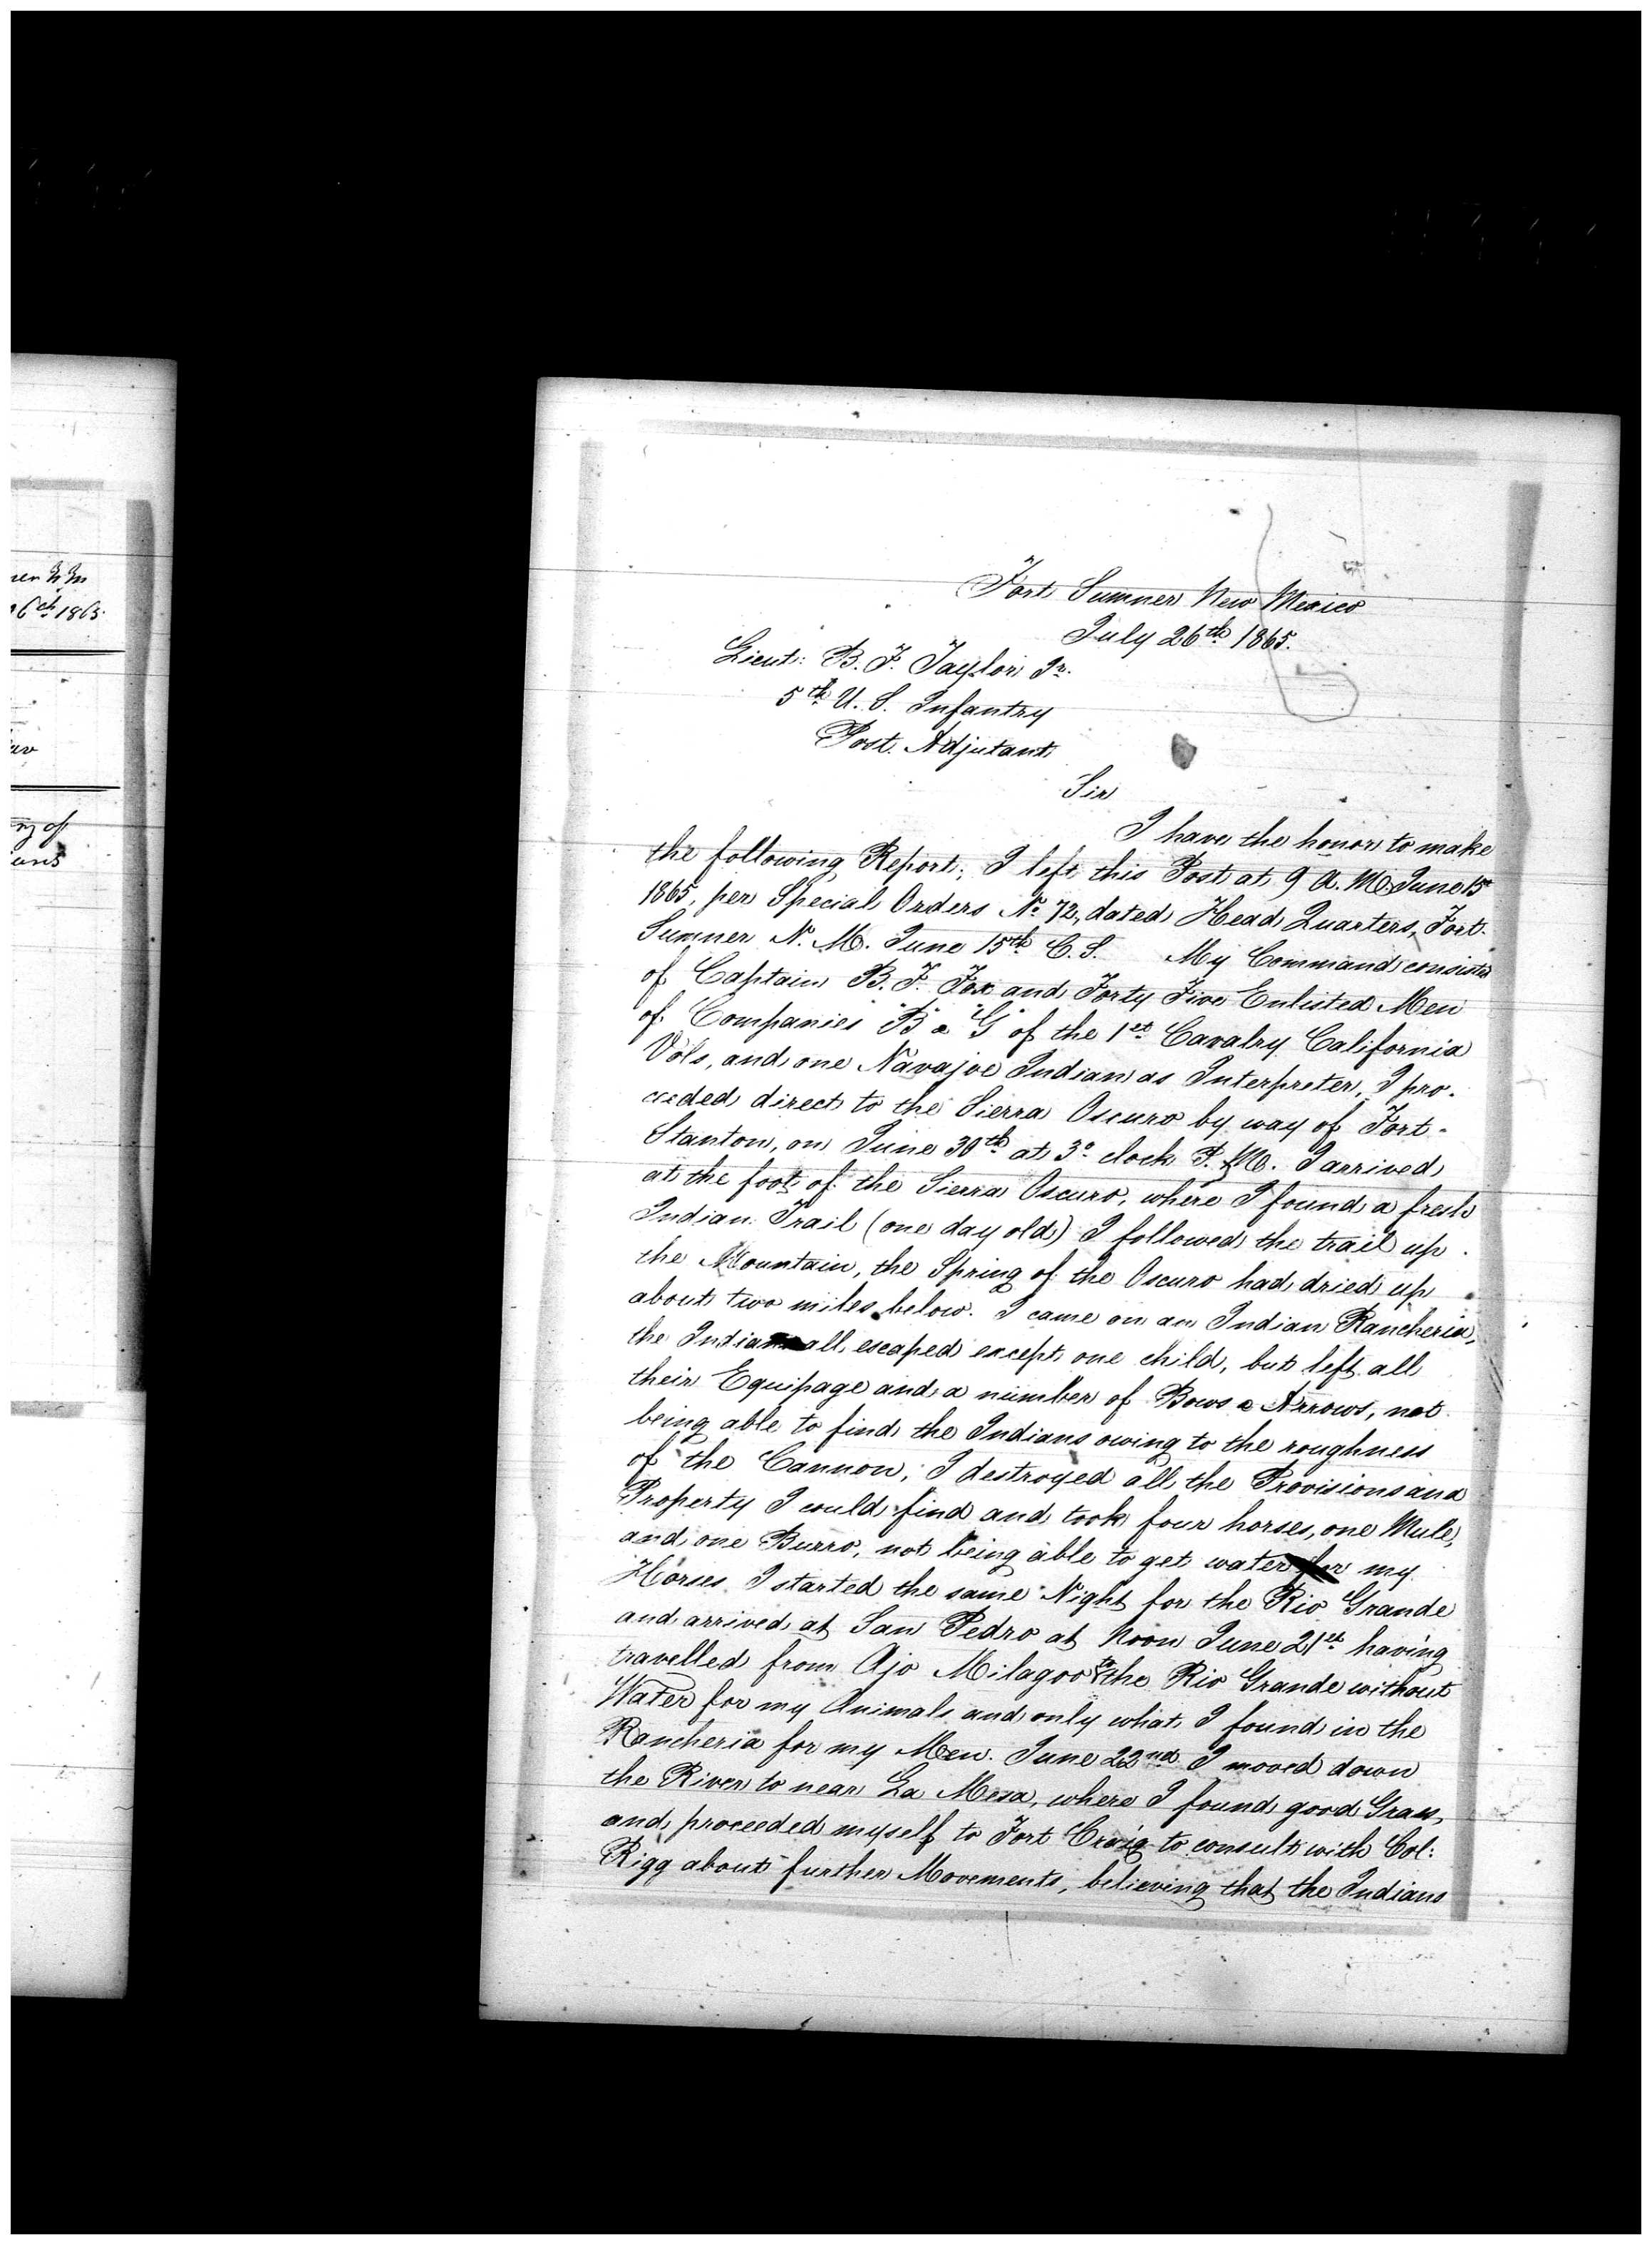 ner N.M
6th 1865.
ny of
ians
Fort Sumner New Mexico
July 26th 1865.
Lieut: B. F. Taylor Jr.
5th U. S. Infantry
Post Adjutant
Sir
I have the honor to make
the following Report; I left this Post at 9 A. M. June 15th
1865, per Special Orders No 72, dated Head Quarters, Fort
Sumner N. M. June 15th C. S. My Command consisted
of Captain B. F. Fox and Forty Five Enlisted Men
of Companies "B" & "G" of the 1st Cavalry California
Vols, and one Navajoe Indian as Interpreter, I pro-
ceeded direct to the Sierra Oscuro by way of Fort
Stanton, on June 30th at 3o clock P. M. I arrived
at the foot of the Sierra Oscuro, where I found a fresh
Indian Trail (one day old) I followed the trail up
the Mountain, the Spring of the Oscuro had dried up
about two miles below. I came on an Indian Rancheria,
the Indians all escaped except one child, but left all
their Equipage and a number of Bows & Arrows, not
being able to find the Indians owing to the roughness
of the Cannon, I destroyed all the Provisions and
Property I could find and took four horses, one Mule,
and one Burro, not being able to get water for my
Horses I started the same Night for the Rio Grande
and arrived at San Pedro at Noon June 21st having
travelled from Ajo Milagoo to the Rio Grande without
Water for my Animals and only what I found in the
Rancheria for my Men. June 22nd I moved down
the River to near La Mesa, where I found good Grass,
and proceeded myself to Fort Craig to consult with Col:
Rigg about further Movements, believing that the Indians